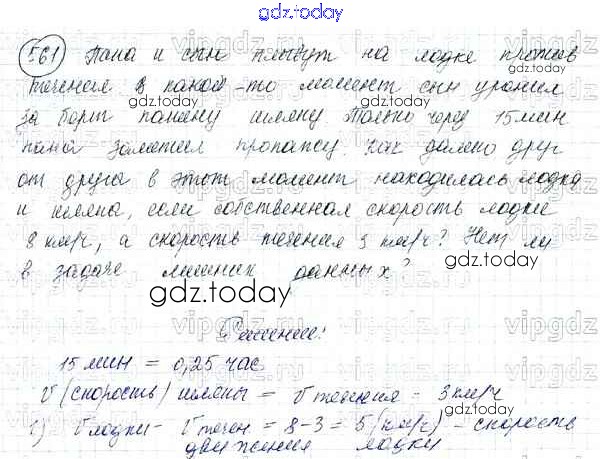 gdz.today
561 Папа и сын плывут на лодке против
течения В какой-то момент сын уронил
за борт папину шляпу. Только через 15 мин
папа заметил пропажу. Как далеко друг
от друга в этот момент находилась лодка
и шляпа, если собственная скорость лодки
8 км/ч, а скорость течения 3 км/ч? Нет ли
в задаче лишних данных?
gdz.today
Решение:
15 мин = 0,25 час
V (скорость) шляпы = V течения - 3 км/ч
1) V лодки - V течен = 8 - 3 = 5 (км/ч) - скорость
движения лодки